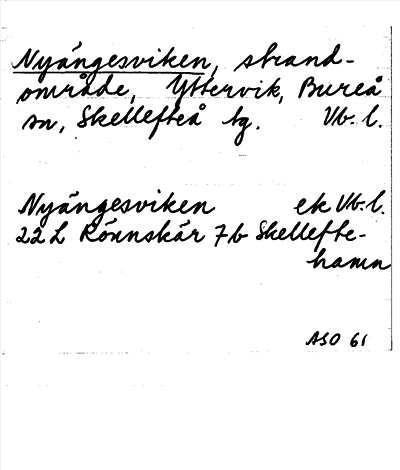 Nyängesviken, strand-
område, Yttervik, Bureå
sn, Skellefteå tg. Vb. l.
Nyängesviken ek Vb. l.
22L Rönnskär 7b Skellefte-
hamn
ASO 61